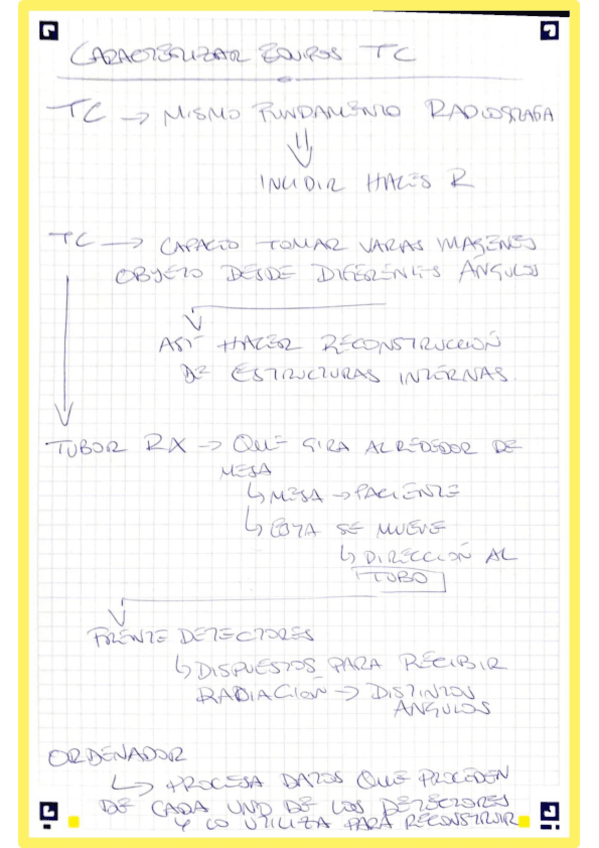 CARACTERIZAR EQUIPOS TC
TC → MISMO FUNDAMENTO RADIOGRAFIA
⇓
INCIDIR HACES R
TC → CAPACID TOMAR VARAS IMAGENES
OBJETO DESDE DIFERENTES ANGULOS
ASI HACER RECONSTRUCCIÓN
DE ESTRUCTURAS INTERNAS.
TUBOR RX → QUE GIRA ALREDEDOR DE
MESA
↳ MESA → PACIENTE
↳ ESTA SE MUEVE
↳ DIRECCIÓN AL
TUBO
FRENTE DETECTORES
↳ DISPUESTOS PARA RECIBIR
RADIACIÓN → DISTINTOS
ANGULOS
ORDENADOR
↳ PROCESA DATOS QUE PROCEDEN
DE CADA UNO DE LOS DETECTORES
Y LO UTILIZA PARA RECONSTRUIR